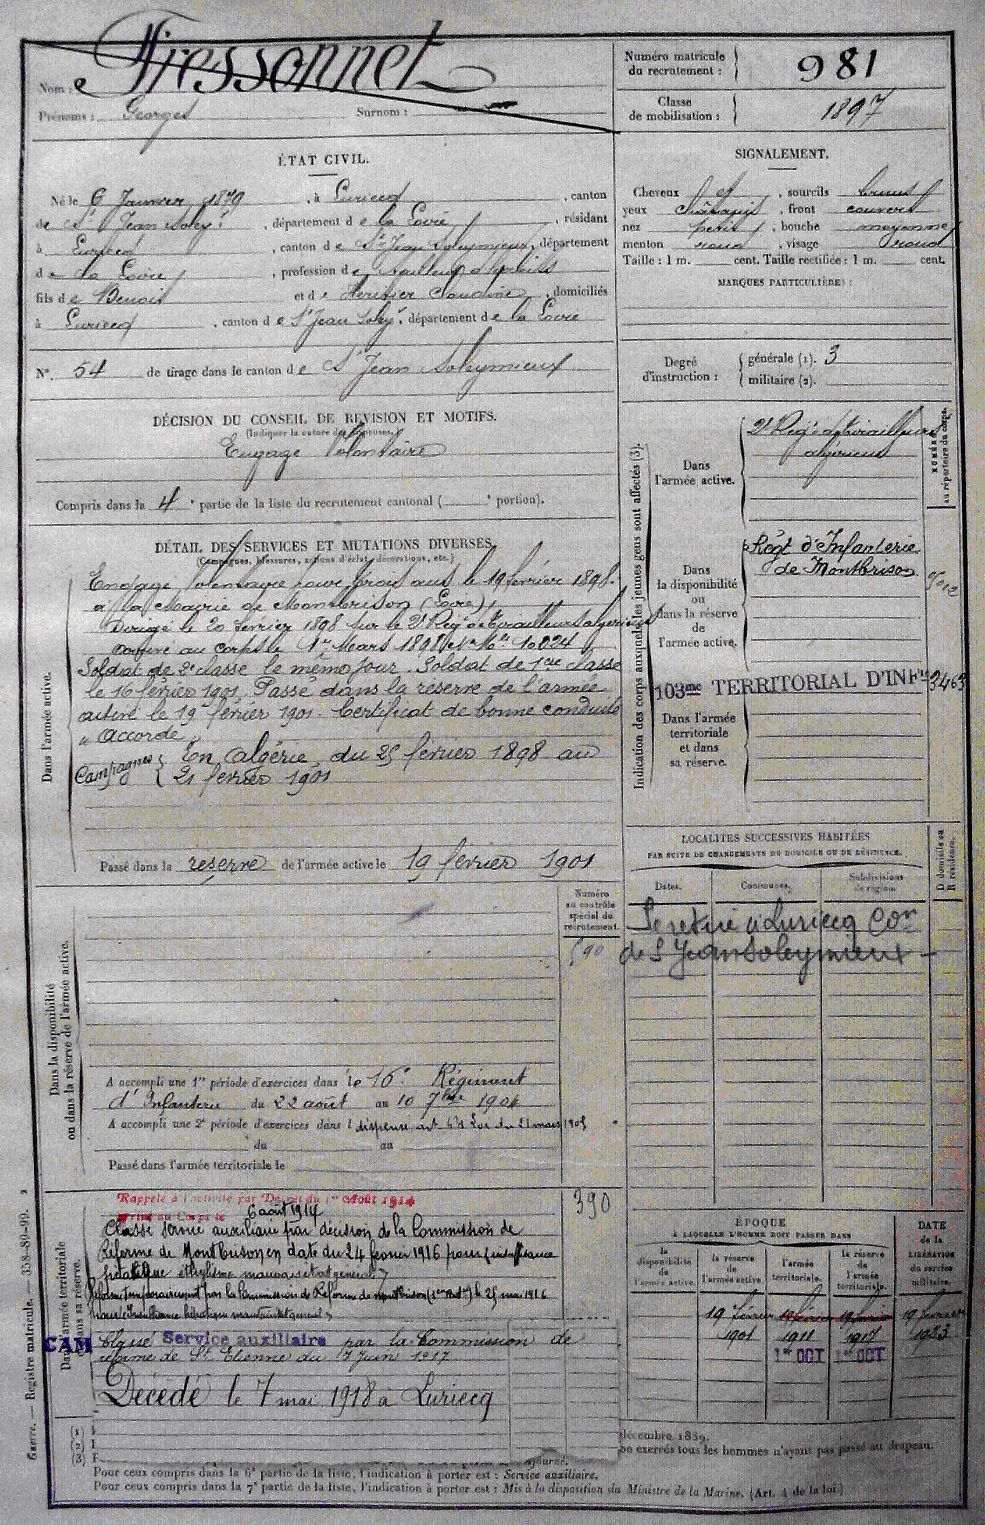 Nom : Fressonnet
Prénoms : Georges Surnom :
Numéro matricule
du recrutement : 981
Classe
de mobilisation : 1897
ÉTAT CIVIL.
Né le 6 Janvier 1879, à Luriecq, canton
de St Jean Soley, département de la Loire, résidant
à Luriecq, canton de St Jean Soleymieux, département
de la Loire, profession de tailleur d'habits
fils de Benoit et de Heritier Claudine, domiciliés
à Luriecq, canton de St Jean Soley, département de la Loire
N°. 54 de tirage dans le canton de St Jean Soleymieux
SIGNALEMENT.
Cheveux et, sourcils bruns
yeux châtains, front couvert
nez petit, bouche moyenne
menton rond, visage rond
Taille : 1 m. cent. Taille rectifiée : 1 m. cent.
MARQUES PARTICULIÈRES :
Degré
d'instruction :
générale (1). 3
militaire (2).
DÉCISION DU CONSEIL DE REVISION ET MOTIFS.
Engagé Volontaire
Compris dans la 4e partie de la liste du recrutement cantonal ( e portion).
DÉTAIL DES SERVICES ET MUTATIONS DIVERSES.
(Campagnes, blessures, actions d'éclat, décorations, etc.)
Dans l'armée active.
Engagé Volontaire pour trois ans le 19 février 1898
à la Mairie de Montbrison (Loire)
Dirigé le 20 février 1898 sur le 2e Régt de tirailleurs algériens
arrivé au corps le 1er Mars 1898 et No Mle 10024
Soldat de 2e classe le même jour. Soldat de 1re classe
le 16 février 1901. Passé dans la réserve de l'armée
active le 19 février 1901. Certificat de bonne conduite
" accordé "
Campagnes { En Algérie, du 25 février 1898 au
21 février 1901
Passé dans la réserve de l'armée active le 19 février 1901
Indication des corps auxquels les jeunes gens sont affectés (3).
NUMÉRO
au répertoire du corps.
Dans
l'armée active.
2e Régt de tirailleurs
algériens
Dans
la disponibilité
ou
dans la réserve
de
l'armée active.
Régt d'Infanterie
de Montbrison
103me TERRITORIAL D'INFie 3463
Dans l'armée
territoriale
et dans
sa réserve.
LOCALITÉS SUCCESSIVES HABITÉES
PAR SUITE DE CHANGEMENTS DE DOMICILE OU DE RÉSIDENCE.
D domicile ou
R résidence.
Dates. Communes. Subdivisions
de région.
Se retire à Luriecq Con
de St Jean Soleymieux
Dans la disponibilité
ou dans la réserve de l'armée active.
Numéro
au contrôle
spécial du
recrutement.
590
A accompli une 1re période d'exercices dans le 16e Régiment
d'Infanterie du 22 août au 10 7bre 1904
A accompli une 2e période d'exercices dans dispensé art. Loi du 21 mars 1905
du au
Passé dans l'armée territoriale le
Dans l'armée territoriale
et dans sa réserve.
390
Rappelé à l'activité par Décret du 1er Août 1914
Arrivé au Corps le 6 août 1914
Classé service auxiliaire par décision de la Commission de
Réforme de Montbrison en date du 24 février 1916 pour insuffisance
hépatique éthylisme mauvais état général
Réformé temporairement par la Commission de Réforme de Montbrison le 25 mai 1916
pour Insuffisance hépatique
CAM Classé Service auxiliaire par la Commission de
réforme de St Etienne du 7 Juin 1917
Décédé le 7 mai 1918 à Luriecq
ÉPOQUE
À LAQUELLE L'HOMME DOIT PASSER DANS
DATE
de la
LIBÉRATION
du service
militaire.
la
disponibilité
de
l'armée active.
la réserve
de
l'armée active.
l'armée
territoriale.
la réserve
de
l'armée
territoriale.
19 février 19 février 19 février 19 février
1901 1911 1917 1923
1er OCT 1er OCT
Guerre. — Registre matricule. — 358-89-99.
(1)
(2)
(3)
décembre 1889.
on exercés tous les hommes n'ayant pas passé au drapeau.
Pour ceux compris dans la 6e partie de la liste, l'indication à porter est : Service auxiliaire.
Pour ceux compris dans la 7e partie de la liste, l'indication à porter est : Mis à la disposition du Ministre de la Marine. (Art. 4 de la loi.)